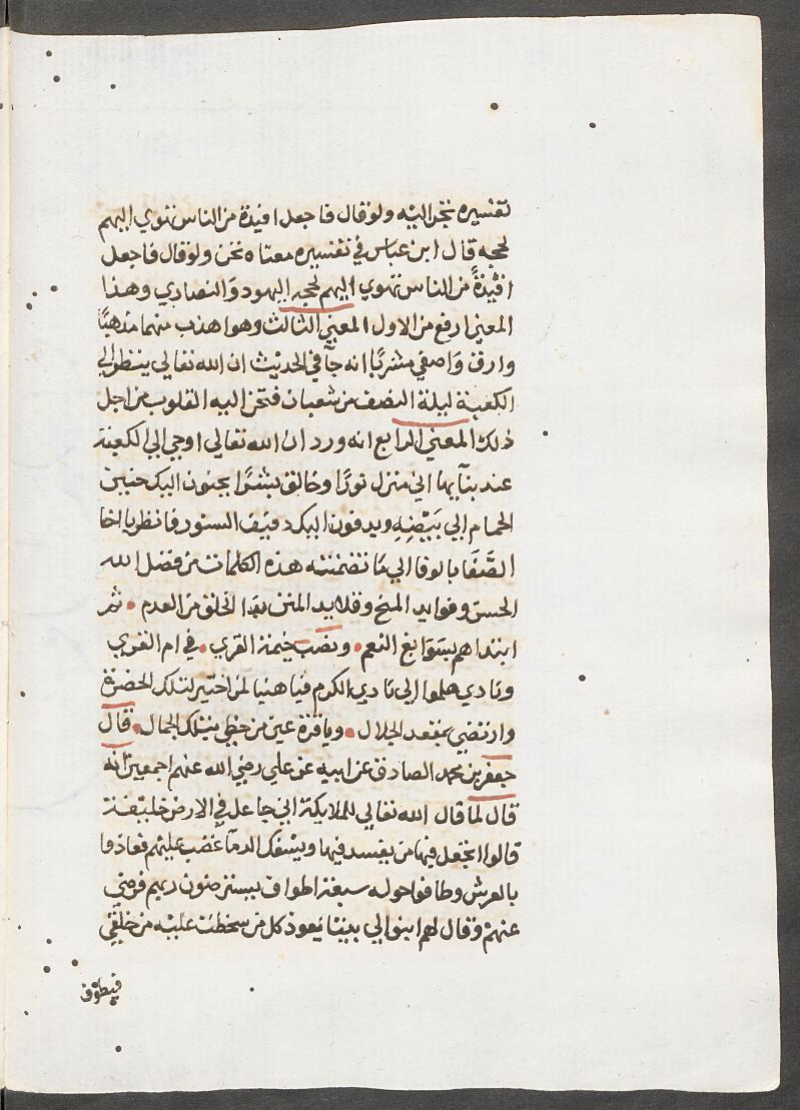 تفسيره تحن اليه ولو قال فاجعل افيدة من الناس تهوي اليهم
لحجه قال ابن عباس في تفسيره معناه تحن ولو قال فاجعل
افئدةً من الناس تهوي اليهم لحجه اليهود وَالنصاري وهذا
المعني ارفع من الاول المعني الثالث وهو اهذب منهما مذهبًا
وارق وَاصفي مشربًا انه جآ في الحديث ان الله تعالي ينظر الي
الكعبة ليلة النصف من شعبان فتحن اليه القلوب من اجل
ذلك المعني الرابع انه ورد ان الله تعالي اوحي الي الكعبة
عند بنآيها اني منزل نورًا وخالق بشرًا يحنون اليك حنين
الحمام الي بَيْضِهِ ويدفون اليك دفيف النسور فانظر يا اخا
الصَّفَا بالوفا الي مَا تضمنته هذه الكلمات من فضل الله
الحسن وفوايد المنح وقلايد المنن بدَا الخلق من العدم • ثم
ابتداهم بسَوَابغ النعم • ونصب خيمة القري • في ام القري
ونادي هلموا الي نادي الكرم فيا هنيا لمن اختير لتلك الحضرة
وارتضي بمقعد الجلال • ويا قرة عين من حظي بتلك الجمال • قال
جعفر بن محمد الصادق عن ابيه عن علي رضي الله عنهم اجمعين انه
قال لما قال الله تعالي للملايكة اني جاعل في الارض خليفة
قالوا اتجعل فيها من يفسد فيها ويسفك الدمآ غضب عليهم فعاذوا
بالعرش وطافوا حوله سبعة اطواف يسترضون ربهم فرضي
عنهمْ وقال لهم ابنوا لي بيتا يعوذ كل من سخطت عليه من خلقي
فيطوف